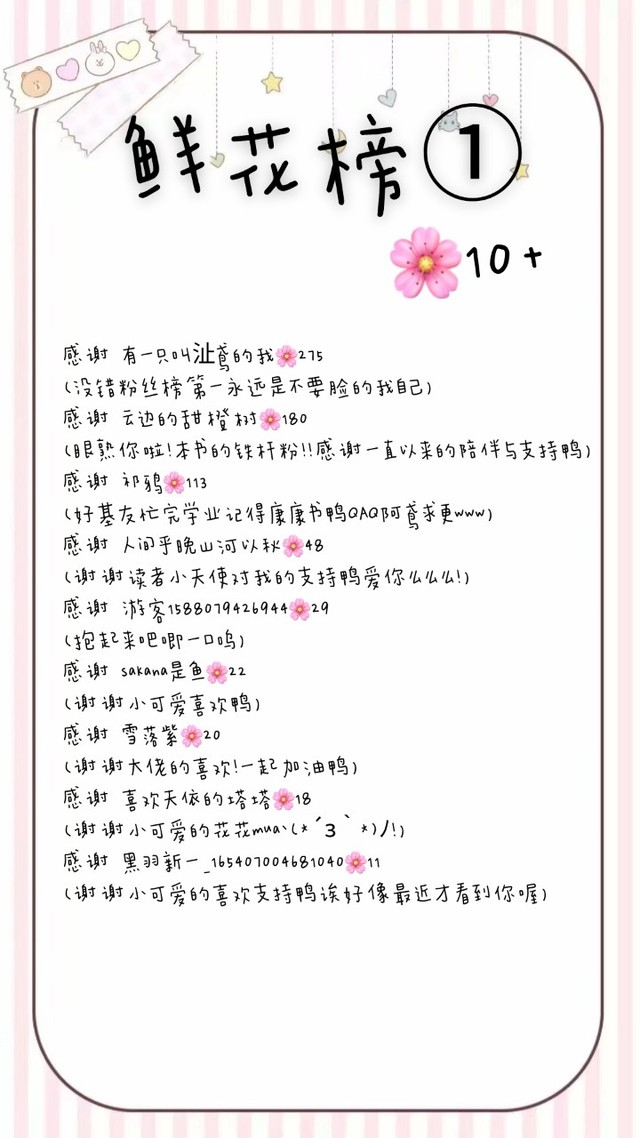 鲜花榜①
🌸10+
感谢 有一只叫沚鸢的我🌸275
(没错粉丝榜第一永远是不要脸的我自己)
感谢 云边的甜橙树🌸180
(眼熟你啦!本书的铁杆粉!!感谢一直以来的陪伴与支持鸭)
感谢 祁鸦🌸113
(好基友忙完学业记得康康书鸭QAQ阿鸢求更www)
感谢 人间乎晚山河以秋🌸48
(谢谢读者小天使对我的支持鸭爱你么么么!)
感谢 游客1588079426944🌸29
(抱起来吧唧一口呜)
感谢 sakana是鱼🌸22
(谢谢小可爱喜欢鸭)
感谢 雪落紫🌸20
(谢谢大佬的喜欢!一起加油鸭)
感谢 喜欢天依的塔塔🌸18
(谢谢小可爱的花花mua丶(*´з｀*)ﾉ!)
感谢 黑羽新一_165407004681040🌸11
(谢谢小可爱的喜欢支持鸭诶好像最近才看到你喔)